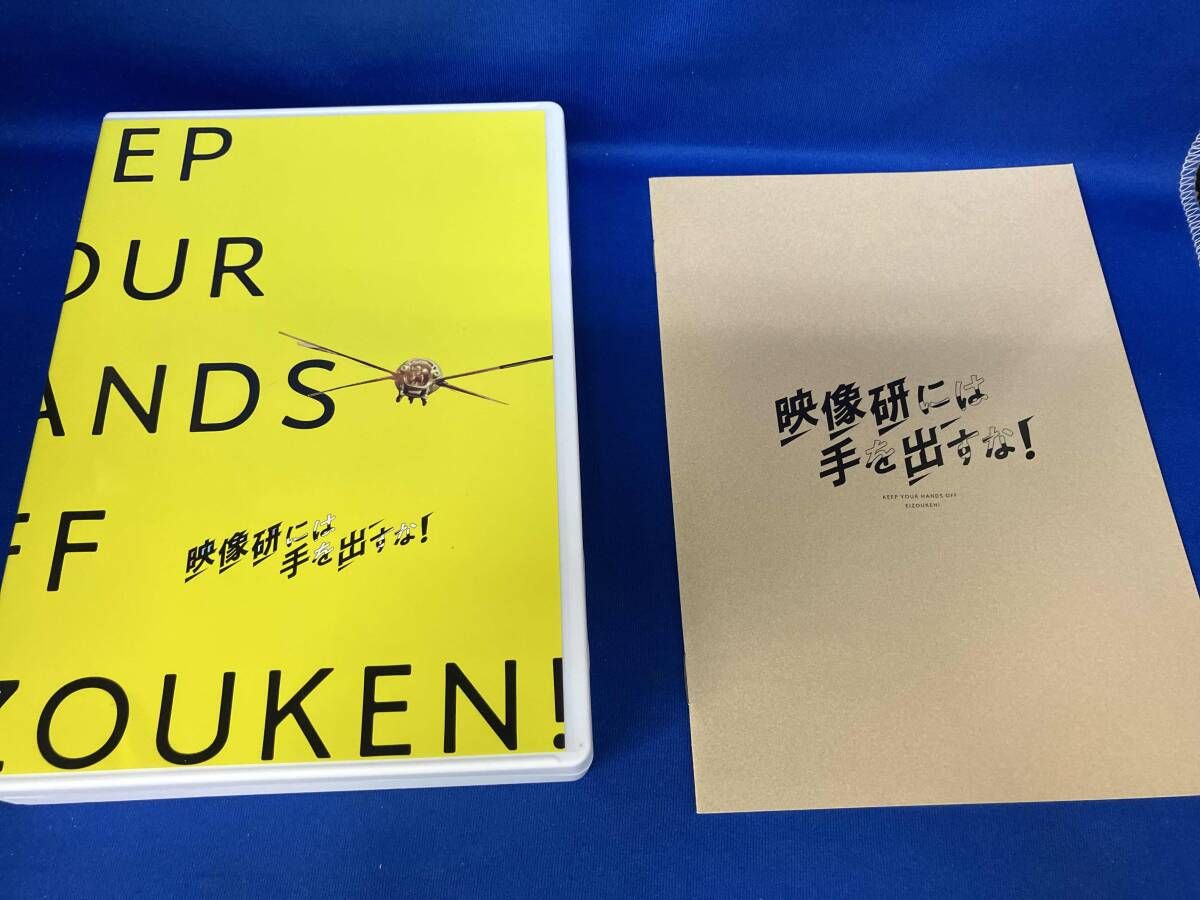 EP
OUR
ANDS
FF
ZOUKEN!
映像研には
手を出すな!
映像研には
手を出すな!
KEEP YOUR HANDS OFF
EIZOUKEN!